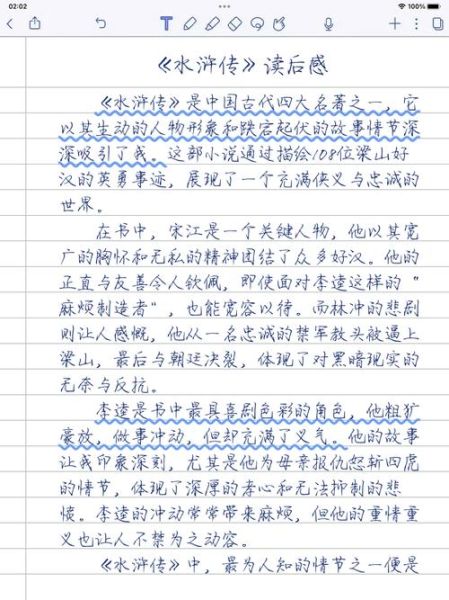 02:02
100%
《水浒传》读后感
《水浒传》是中国古代四大名著之一，它
以其生动的人物形象和跌宕起伏的故事情节深
深吸引了我。这部小说通过描绘108位梁山好
汉的英勇事迹，展现了一个充满侠义与忠诚的
世界。
在书中，宋江是一个关键人物，他以其宽
广的胸怀和无私的精神团结了众多好汉。他的
正直与友善令人钦佩，即使面对李逵这样的“
麻烦制造者”，也能宽容以待。而林冲的悲剧
则让人感慨，他从一名忠诚的禁军教头被逼上
梁山，最后与朝廷决裂，体现了对黑暗现实的
无奈与反抗。
李逵是书中最具喜剧色彩的角色，他粗犷
豪放，做事冲动，但却充满了义气。他的故事
让我印象深刻，尤其是他为母亲报仇怒斩四虎
的情节，体现了深厚的孝心和无法抑制的悲
愤。李逵的冲动常常带来麻烦，但他的重情重
义也让人不禁为之动容。
《水浒传》中，最为人知的情节之一便是